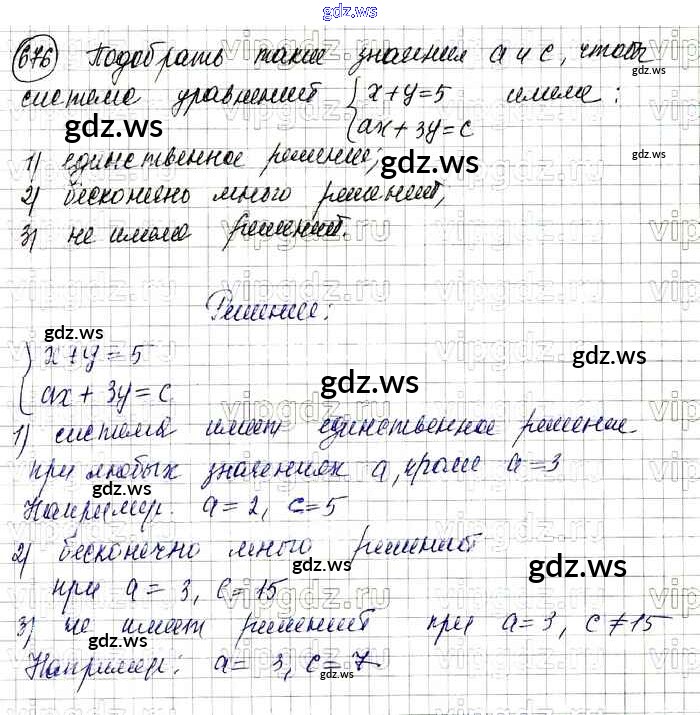 gdz.ws
676 Подобрать такие значения a и c, чтобы
система уравнений { x+y=5 имела:
ax+3y=c
1) единственное решение;
2) бесконечно много решений;
3) не имела решений.
Решение:
{ x+y=5
ax+3y=c
1) система имеет единственное решение
при любых значениях a, кроме a=3
Например: a=2, c=5
2) бесконечно много решений
при a=3, c=15
3) не имеет решений при a=3, c≠15
Например: a=3, c=7